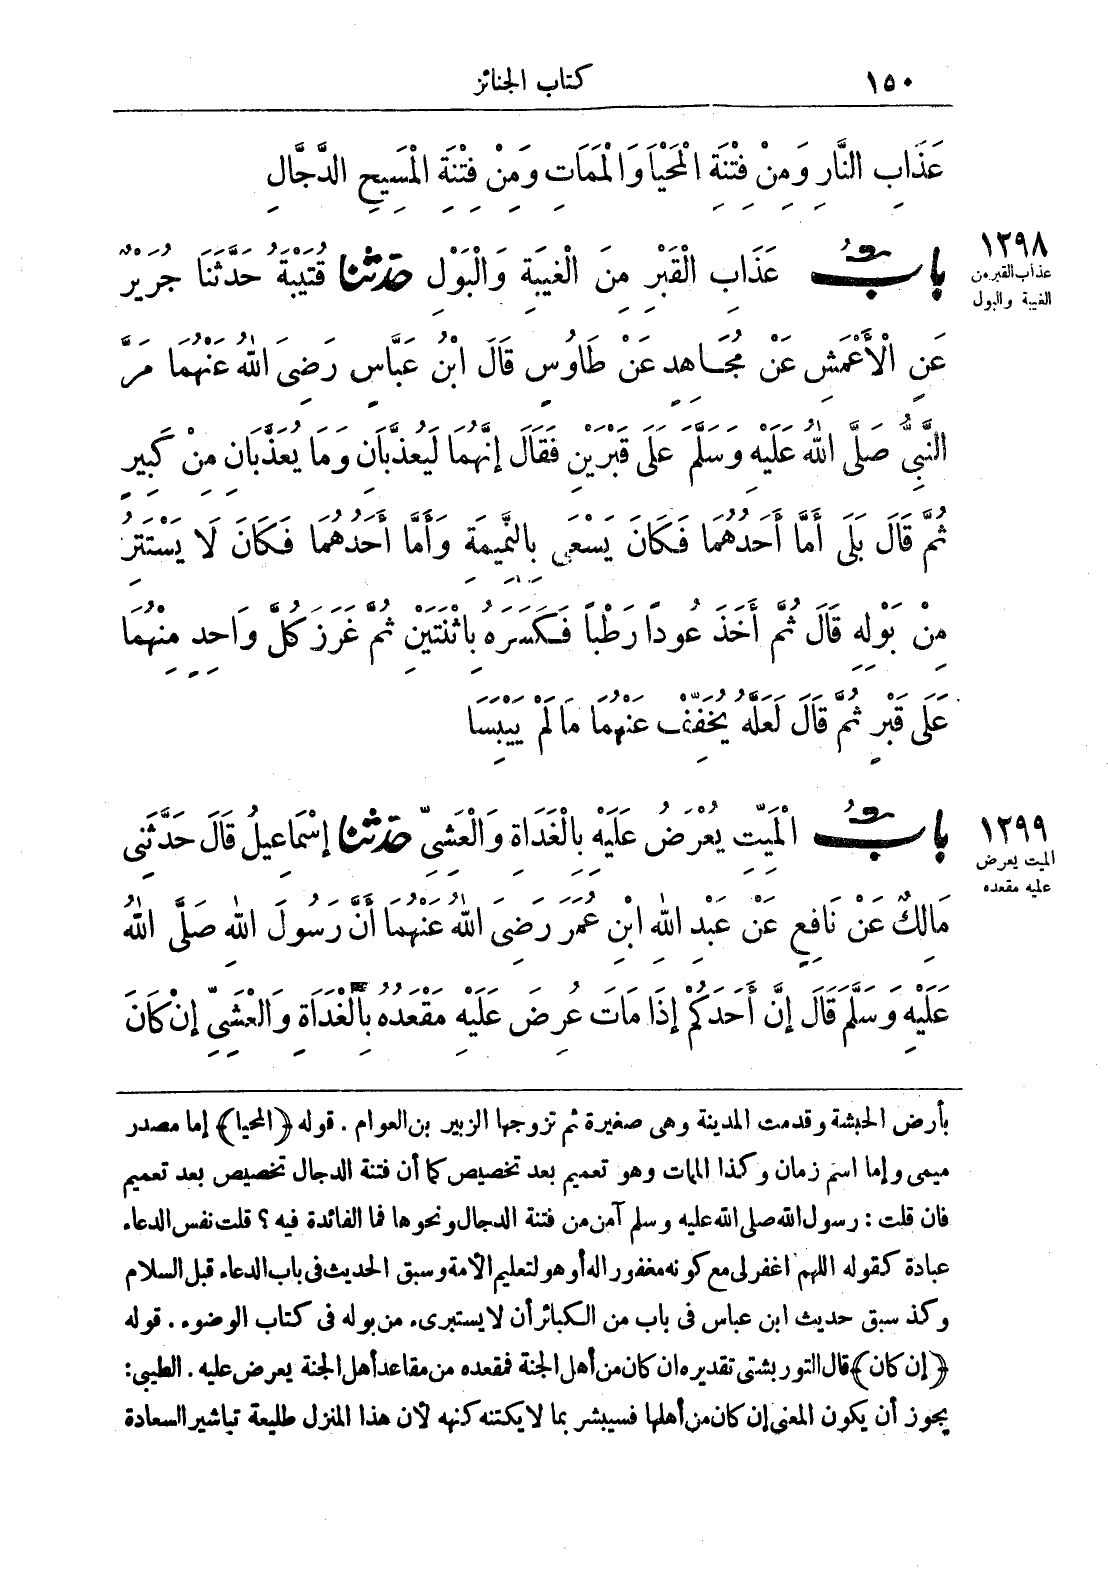 ١٥٠ كتاب الجنائز
عَذَابِ النَّارِ وَمِنْ فِتْنَةِ الْمَحْيَا وَالْمَمَاتِ وَمِنْ فِتْنَةِ الْمَسِيحِ الدَّجَّالِ
١٢٩٨
عذاب القبر من
الغيبة والبول
بابُ عَذَابِ الْقَبْرِ مِنَ الْغِيبَةِ وَالْبَوْلِ حَدَّثَنَا قُتَيْبَةُ حَدَّثَنَا جَرِيرٌ
عَنِ الْأَعْمَشِ عَنْ مُجَاهِدٍ عَنْ طَاوُسٍ قَالَ ابْنُ عَبَّاسٍ رَضِىَ اللهُ عَنْهُمَا مَرَّ
النَّبِىُّ صَلَّى اللهُ عَلَيْهِ وَسَلَّمَ عَلَى قَبْرَيْنِ فَقَالَ إِنَّهُمَا لَيُعَذَّبَانِ وَمَا يُعَذَّبَانِ مِنْ كَبِيرٍ
ثُمَّ قَالَ بَلَى أَمَّا أَحَدُهُمَا فَكَانَ يَسْعَى بِالنَّمِيمَةِ وَأَمَّا أَحَدُهُمَا فَكَانَ لَا يَسْتَتِرُ
مِنْ بَوْلِهِ قَالَ ثُمَّ أَخَذَ عُوداً رَطْباً فَكَسَرَهُ بِاثْنَتَيْنِ ثُمَّ غَرَزَ كُلَّ وَاحِدٍ مِنْهُمَا
عَلَى قَبْرٍ ثُمَّ قَالَ لَعَلَّهُ يُخَفَّفُ عَنْهُمَا مَا لَمْ يَيْبَسَا
١٢٩٩
الميت يعرض
عليه مقعده
بابُ الْمَيِّتِ يُعْرَضُ عَلَيْهِ بِالْغَدَاةِ وَالْعَشِىِّ حَدَّثَنَا إِسْمَاعِيلُ قَالَ حَدَّثَنِى
مَالِكٌ عَنْ نَافِعٍ عَنْ عَبْدِ اللهِ ابْنِ عُمَرَ رَضِىَ اللهُ عَنْهُمَا أَنَّ رَسُولَ اللهِ صَلَّى اللهُ
عَلَيْهِ وَسَلَّمَ قَالَ إِنَّ أَحَدَكُمْ إِذَا مَاتَ عُرِضَ عَلَيْهِ مَقْعَدُهُ بِالْغَدَاةِ وَالْعَشِىِّ إِنْ كَانَ
بأرض الحبشة وقدمت المدينة وهى صغيرة ثم تزوجها الزبير بن العوام . قوله ﴿المحيا﴾ إما مصدر
ميمى وإما اسم زمان وكذا الممات وهو تعميم بعد تخصيص كما أن فتنة الدجال تخصيص بعد تعميم
فان قلت : رسول الله صلى الله عليه وسلم آمن من فتنة الدجال ونحوها فما الفائدة فيه ؟ قلت نفس الدعاء
عبادة كقوله اللهم اغفر لى مع كونه مغفورا له أو هو لتعليم الأمة وسبق الحديث فى باب الدعاء قبل السلام
وكذ سبق حديث ابن عباس فى باب من الكبائر أن لا يستبرىء من بوله فى كتاب الوضوء . قوله
﴿إن كان﴾ قال التوربشتى تقديره ان كان من أهل الجنة فمقعده من مقاعد أهل الجنة يعرض عليه . الطيبى :
يجوز أن يكون المعنى إن كان من أهلها فسيبشر بما لا يكتنه كنهه لأن هذا المنزل طليعة تباشير السعادة